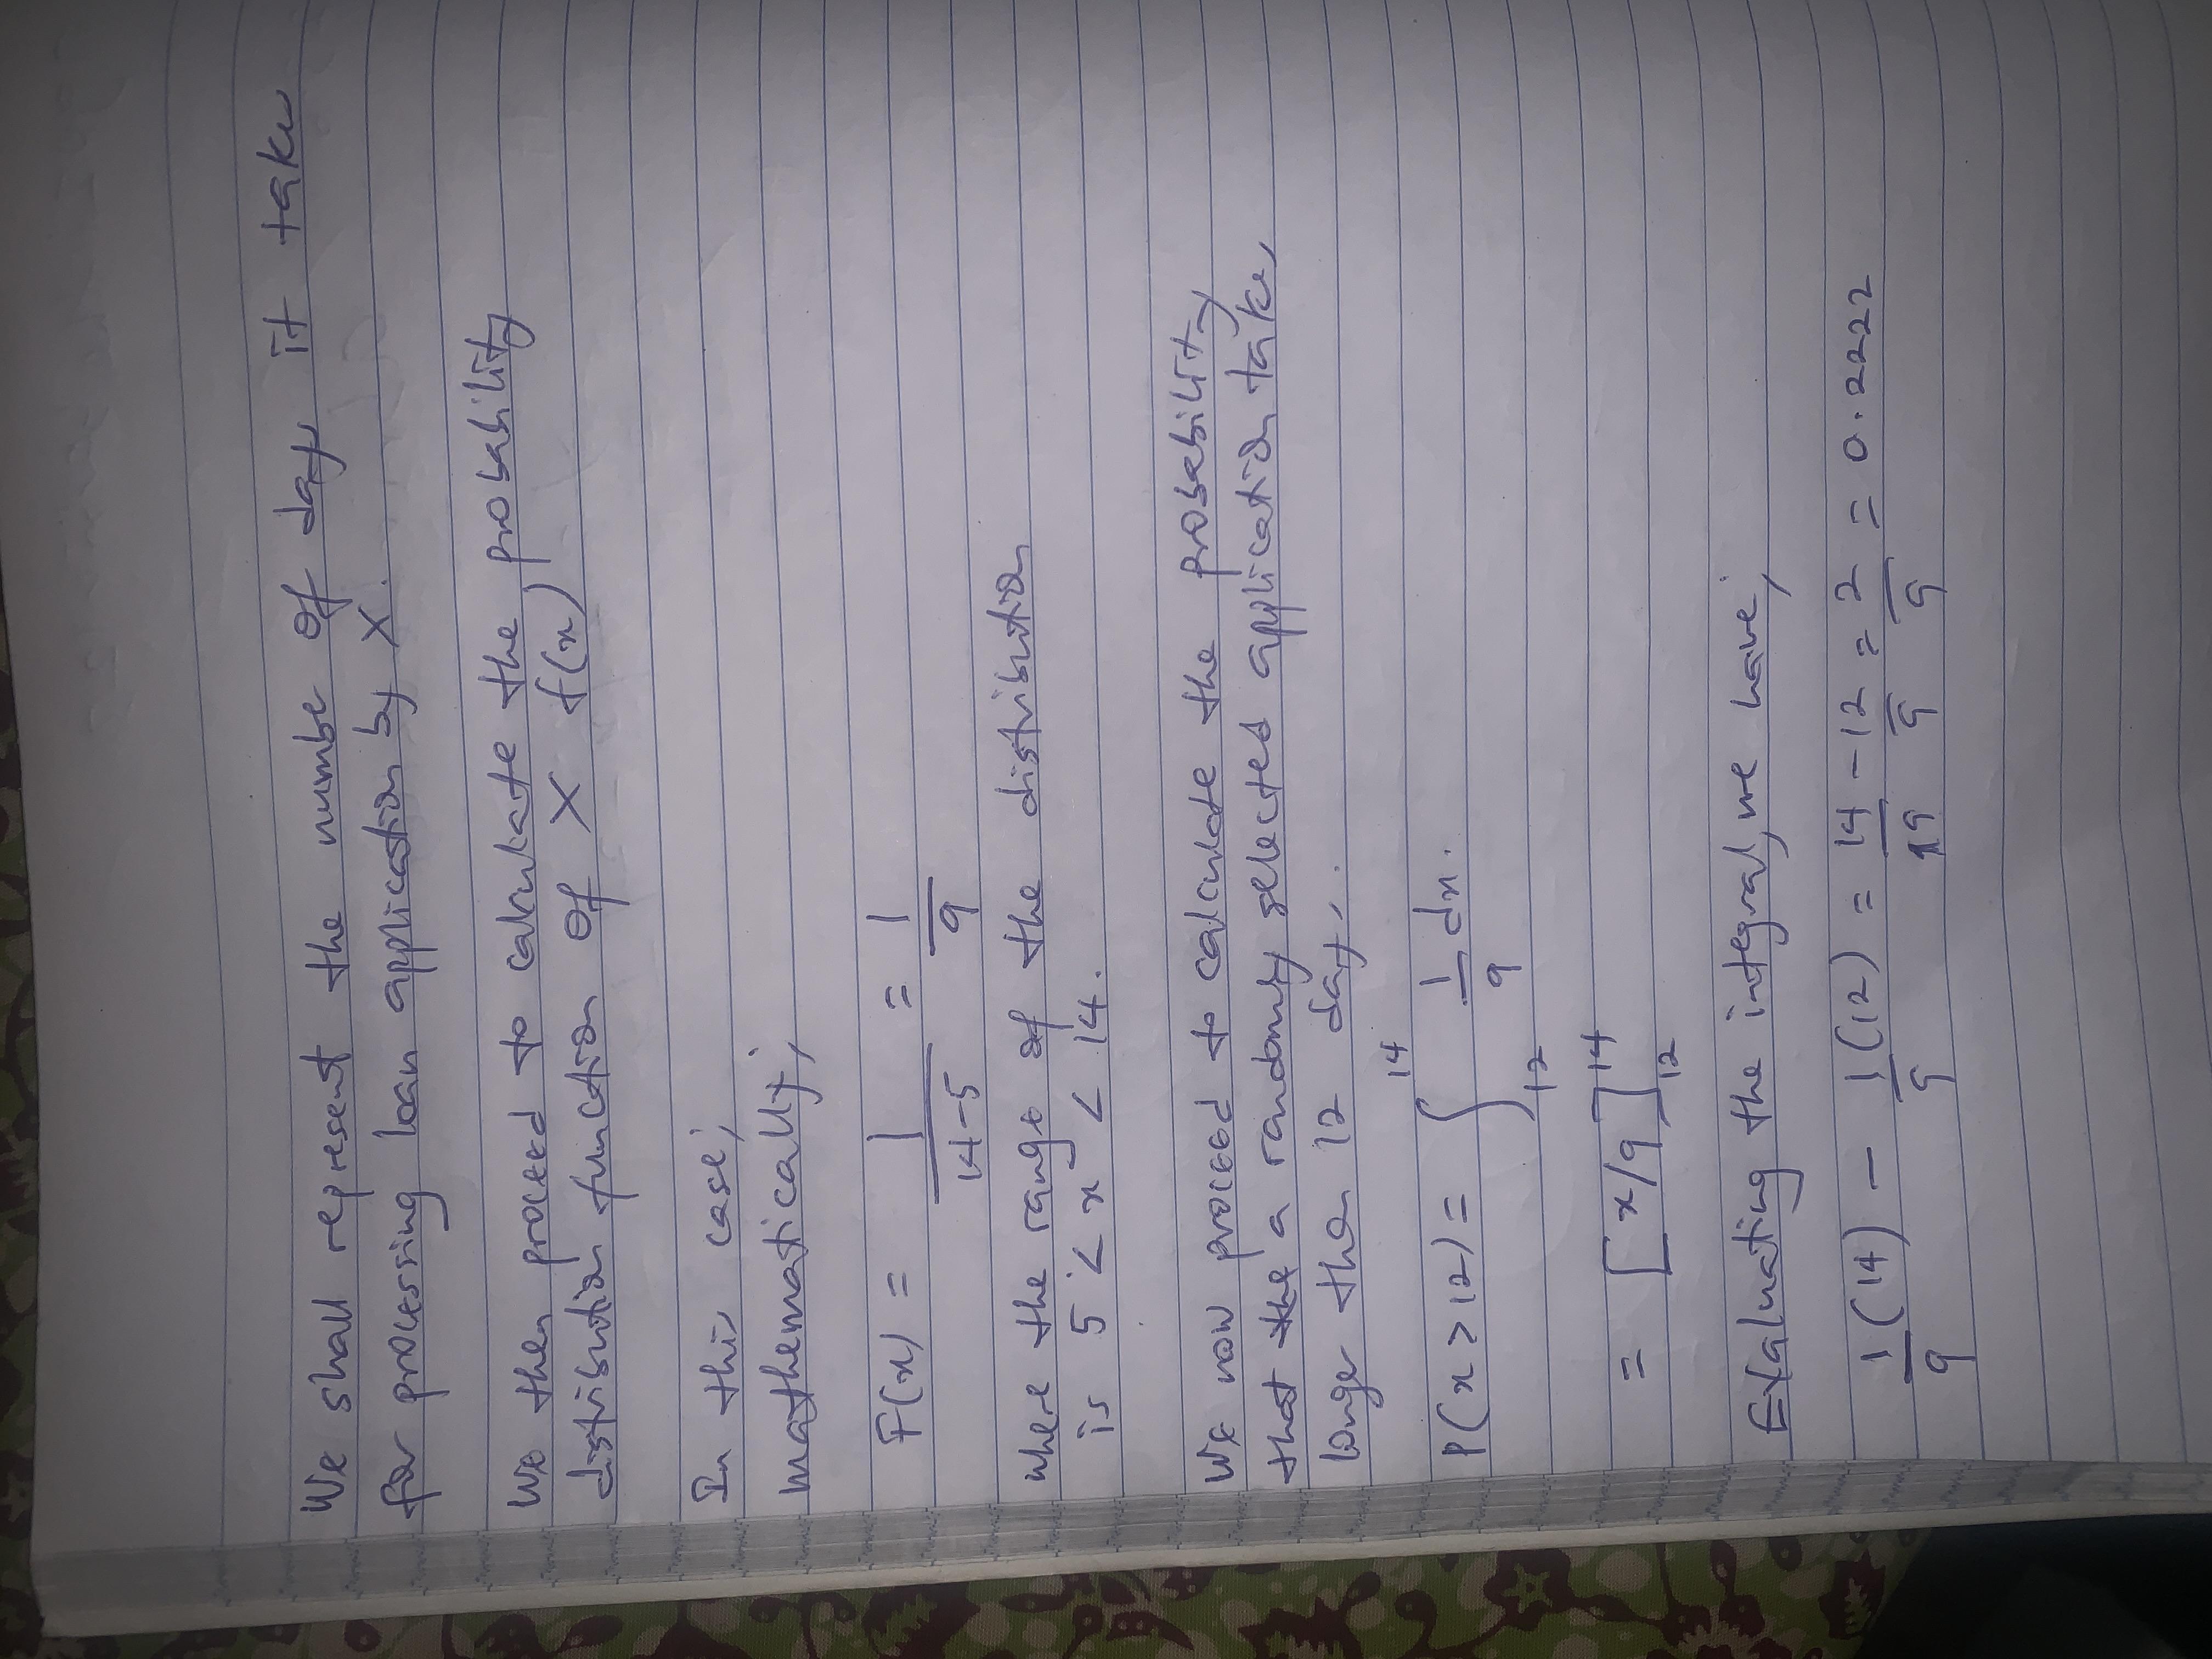 We shall represent the number of days it takes
for processing loan application by X.
We then proceed to calculate the probability
distribution function of X f(x)
In this case;
mathematically,
F(x) = 1/(14-5) = 1/9
where the range of the distribution
is 5 < x < 14.
We now proceed to calculate the probability
that the a randomly selected application takes
longer than 12 days.
P(x > 12) = ∫₁₂¹⁴ 1/9 dx.
= [x/9]₁₂¹⁴
Evaluating the integral, we have;
1/9 (14) - 1/9 (12) = 14/9 - 12/9 = 2/9 = 0.2222